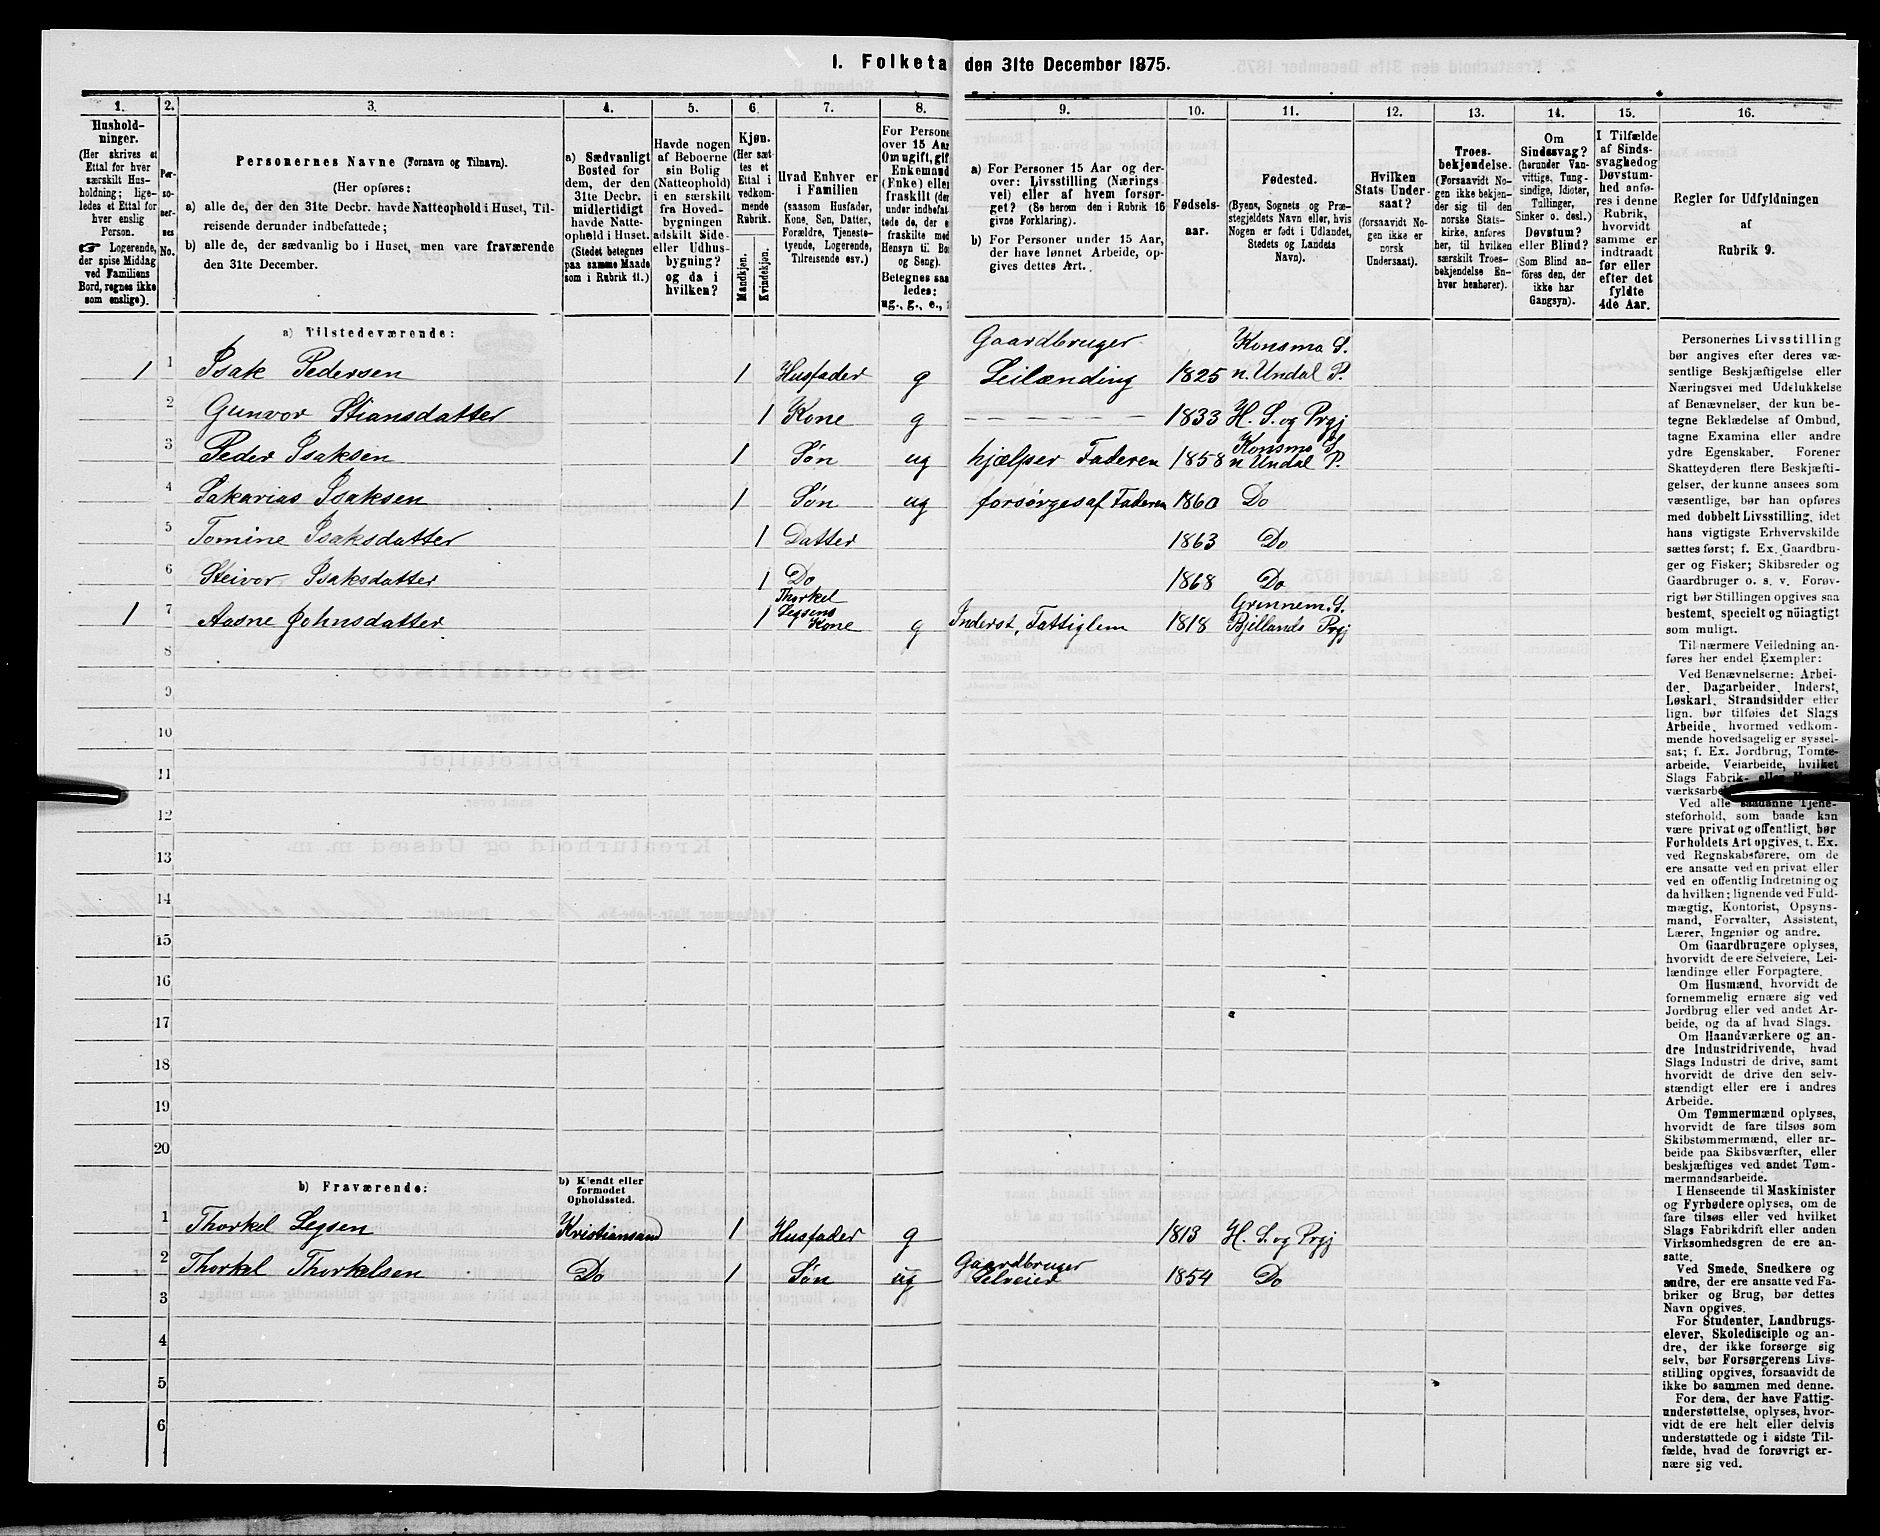 1. Folketa den 31te December 1875.
1. 2. 3. 4. 5. 6. 7. 8. 9. 10. 11. 12. 13. 14. 15. 16.
Hushold-
ninger.
(Her skrives et
Ettal for hver
særskilt Hus-
holdning; lige-
ledes et Ettal for
hver enslig
Person.
☞ Logerende,
der spise Middag
ved Familiens
Bord, regnes ikke
som enslige).
Per-
so-
ner-
nes
No.
Personernes Navne (Fornavn og Tilnavn).
(Her opføres:
a) alle de, der den 31te Decbr. havde Natteophold i Huset, Til-
reisende derunder indbefattede;
b) alle de, der sædvanlig bo i Huset, men vare fraværende
den 31te December.
a) Sædvanligt
Bosted for
dem, der den
31te Decbr.
midlertidigt
havde Natte-
ophold i Huset.
(Stedet betegnes
paa samme Maade
som i Rubrik 11.)
Havde nogen
af Beboerne
sin Bolig
(Natteophold)
i en særskilt
fra Hoved-
bygningen
adskilt Side-
eller Udhus-
bygning?
og da i
hvilken?
Kjøn.
(Her sæt-
tes et
Ettal i
vedkom-
mende
Rubrik.
Mandkjøn.
Kvindekjøn.
Hvad Enhver er
i Familien
(saasom Husfader,
Kone, Søn, Datter,
Forældre, Tjeneste-
tyende, Logerende,
Tilreisende osv.)
For Persone
over 15 Aar
Om ugift, gif
Enkemand
(Enke) eller
fraskilt (der
under indbefat-
tede de, der e
fraskilte med
Hensyn til Bo
og Seng).
Betegnes saa
ledes:
ug., g., e.,
a) For Personer 15 Aar og der-
over: Livsstilling (Nærings
vei) eller af hvem forsør-
get? (Se herom den i Rubrik 16
givne Forklaring).
b) For Personer under 15 Aar,
der have lønnet Arbeide, op-
gives dettes Art.
Fødsels-
aar.
Fødested.
(Byens, Sognets og Præ-
stegjeldets Navn eller, hvis
Nogen er født i Udlandet,
Stedets og Landets
Navn).
Hvilken
Stats Under-
saat?
(forsaavidt No-
gen ikke er
norsk
Undersaat).
Troes-
bekjendelse.
(Forsaavidt No-
gen ikke bekjen-
der sig til den
norske Stats-
kirke, anføres
her, til hvilken
særskilt Troes-
bekjendelse En-
hver henhører).
Om
Sindssvag?
(herunder Van-
vittige, Tung-
sindige, Idioter,
Tullinger,
Sinker o. desl.)
Døvstum?
eller Blind?
(Som Blind an-
føres den, der
ikke har
Gangsyn).
I Tilfælde
af Sinds-
svaghed og
Døvstum-
hed anfø-
res i denne
Rubrik,
hvorvidt
samme er
indtraadt
før eller
efter det
fyldte
4de Aar.
Regler for Udfyldningen
af
Rubrik 9.
a) Tilstedeværende:
1 1 Isak Pedersen 1 Husfader g Gaardbruger Leilænding 1825 Konsmo S. n. Undal P.
2 Gunvor Stiansdatter 1 Kone g 1833 H. S. og Prgj
3 Peder Isaksen 1 Søn ug hjælper Faderen 1858 Konsmo S. n. Undal P.
4 Sakarias Isaksen 1 Søn ug forsørges af Faderen 1860 Do
5 Tomine Isaksdatter 1 Datter 1863 Do
6 Steivor Isaksdatter 1 Do 1868 Do
1 7 Aasne Johnsdatter 1 Thorkel Legsens Kone g Inderst, Fattiglem 1818 Grinnem. S. Bjellands Prgj
8
9
10
11
12
13
14
15
16
17
18
19
20
b) Fraværende:
b) Kjendt eller
formodet
Opholdssted.
1 Thorkel Legsen Kristiansand 1 Husfader g 1813 H. S. og Prgj
2 Thorkel Thorkelsen Do 1 Søn ug Gaardbruger Selveier 1854 Do
3
4
5
6
Personernes Livsstilling
bør angives efter deres væ-
sentlige Beskjæftigelse eller
Næringsvei med Udelukkelse
af Benævnelser, der kun be-
tegne Beklædelse af Ombud,
tagne Examina eller andre
ydre Egenskaber. Forener
Skatteyderen flere Beskjæfti-
gelser, der kunne ansees som
væsentlige, bør han opføres
med dobbelt Livsstilling, idet
hans vigtigste Erhvervskilde
sættes først; f. Ex. Gaardbru-
ger og Fisker; Skibsreder og
Gaardbruger o. s. v. Forøv-
rigt bør Stillingen opgives saa
bestemt, specielt og nöiagtigt
som muligt.
Til nærmere Veiledning an-
føres her endel Exempler:
Ved Benævnelserne: Arbei-
der, Dagarbeider, Inderst,
Løskarl, Strandsidder eller
lign. bør tilføies det Slags
Arbeide, hvormed vedkom-
mende hovedsagelig er syssel-
sat; f. Ex. Jordbrug, Tomte-
arbeide, Veiarbeide, hvilket
Slags Fabrik- eller
værksarbe
Ved alle saadanne Tjene-
steforhold, som baade kan
være privat og offentligt, bør
Forholdets Art opgives, t. Ex.
ved Regnskabsførere, om de
ere ansatte ved en privat eller
ved en offentlig Indretning og
da hvilken; lignende ved Fuld-
mægtig, Kontorist, Opsyns-
mand, Forvalter, Assistent,
Lærer, Ingeniør og andre.
Om Gaardbrugere oplyses,
hvorvidt de ere Selveiere, Lei-
lændinge eller Forpagtere.
Om Husmænd, hvorvidt de
fornemmelig ernære sig ved
Jordbrug eller ved andet Ar-
beide, og da af hvad Slags.
Om Haandværkere og an-
dre Industridrivende, hvad
Slags Industri de drive, samt
hvorvidt de drive den selv-
stændigt eller ere i andres
Arbeide.
Om Tømmermænd oplyses,
hvorvidt de fare tilsøs som
Skibstømmermænd, eller ar-
beide paa Skibsværfter, eller
beskjæftiges ved andet Tøm-
mermandsarbeide.
I Henseende til Maskinister
og Fyrbødere oplyses, om de
fare tilsøs eller ved hvilket
Slags Fabrikdrift eller anden
Virksomhedsgren de ere an-
satte.
Ved Smede, Snedkere og
andre, der ere ansatte ved Fa-
briker og Brug, bør dettes
Navn opgives.
For Studenter, Landbrugs-
elever, Skoledisciple og an-
dre, der ikke forsørge sig
selv, bør Forsørgerens Livs-
stilling opgives, forsaavidt de
ikke bo sammen med denne.
For dem, der have Fattig-
understøttelse, oplyses, hvor-
vidt de ere helt eller delvis
understøttede og i sidste Til-
fælde, hvad de forøvrigt er-
nære sig ved.